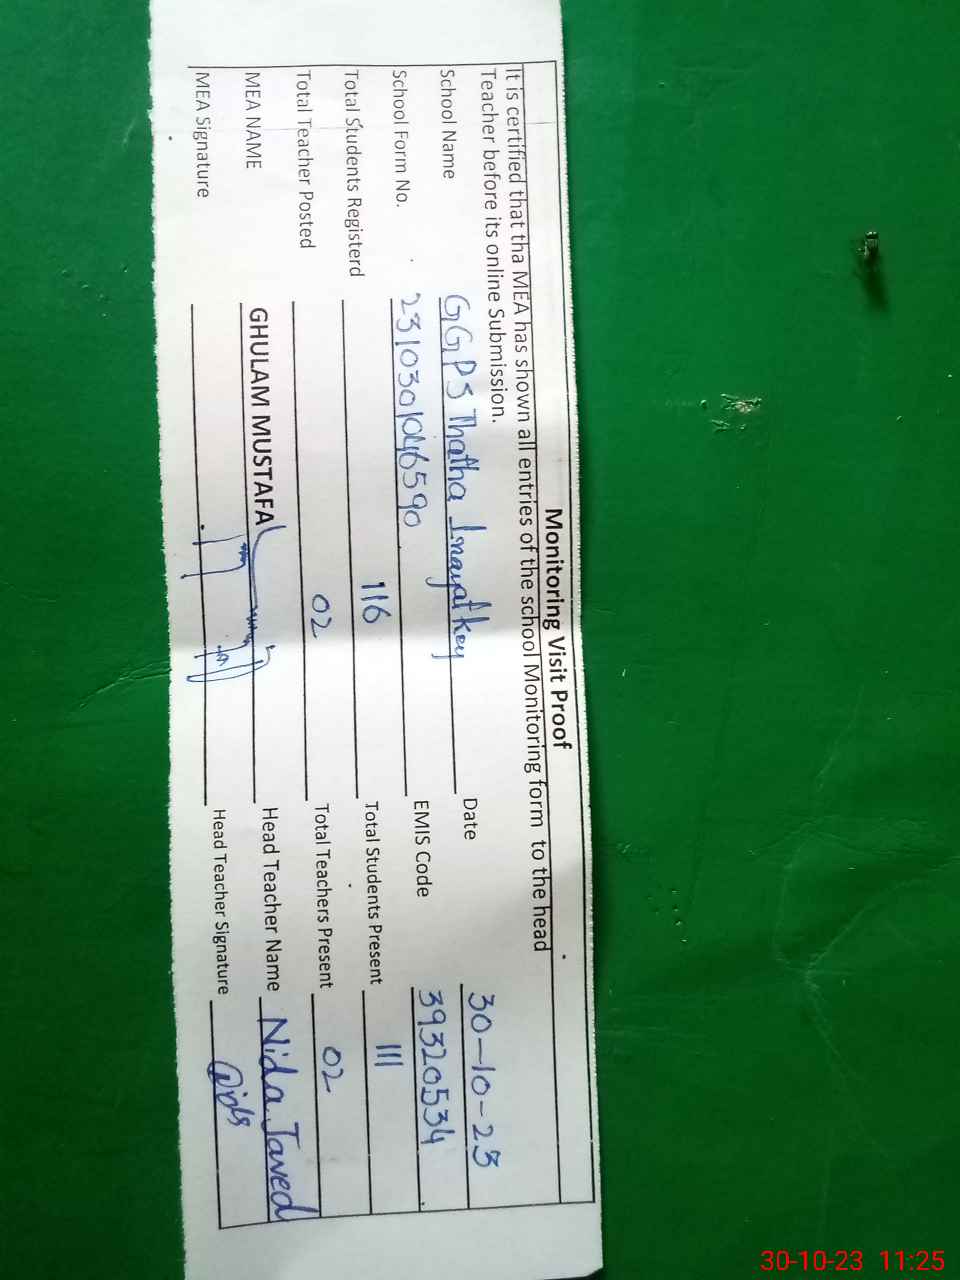 Monitoring Visit Proof
It is certified that tha MEA has shown all entries of the school Monitoring form to the head
Teacher before its online Submission.
School Name GGPS Thatha Inayat key Date 30-10-23
School Form No. 2310301046590 EMIS Code 39320534
Total Students Registerd 116 Total Students Present 111
Total Teacher Posted 02 Total Teachers Present 02
MEA NAME GHULAM MUSTAFA Head Teacher Name Nida Javed
MEA Signature Head Teacher Signature
30-10-23 11:25